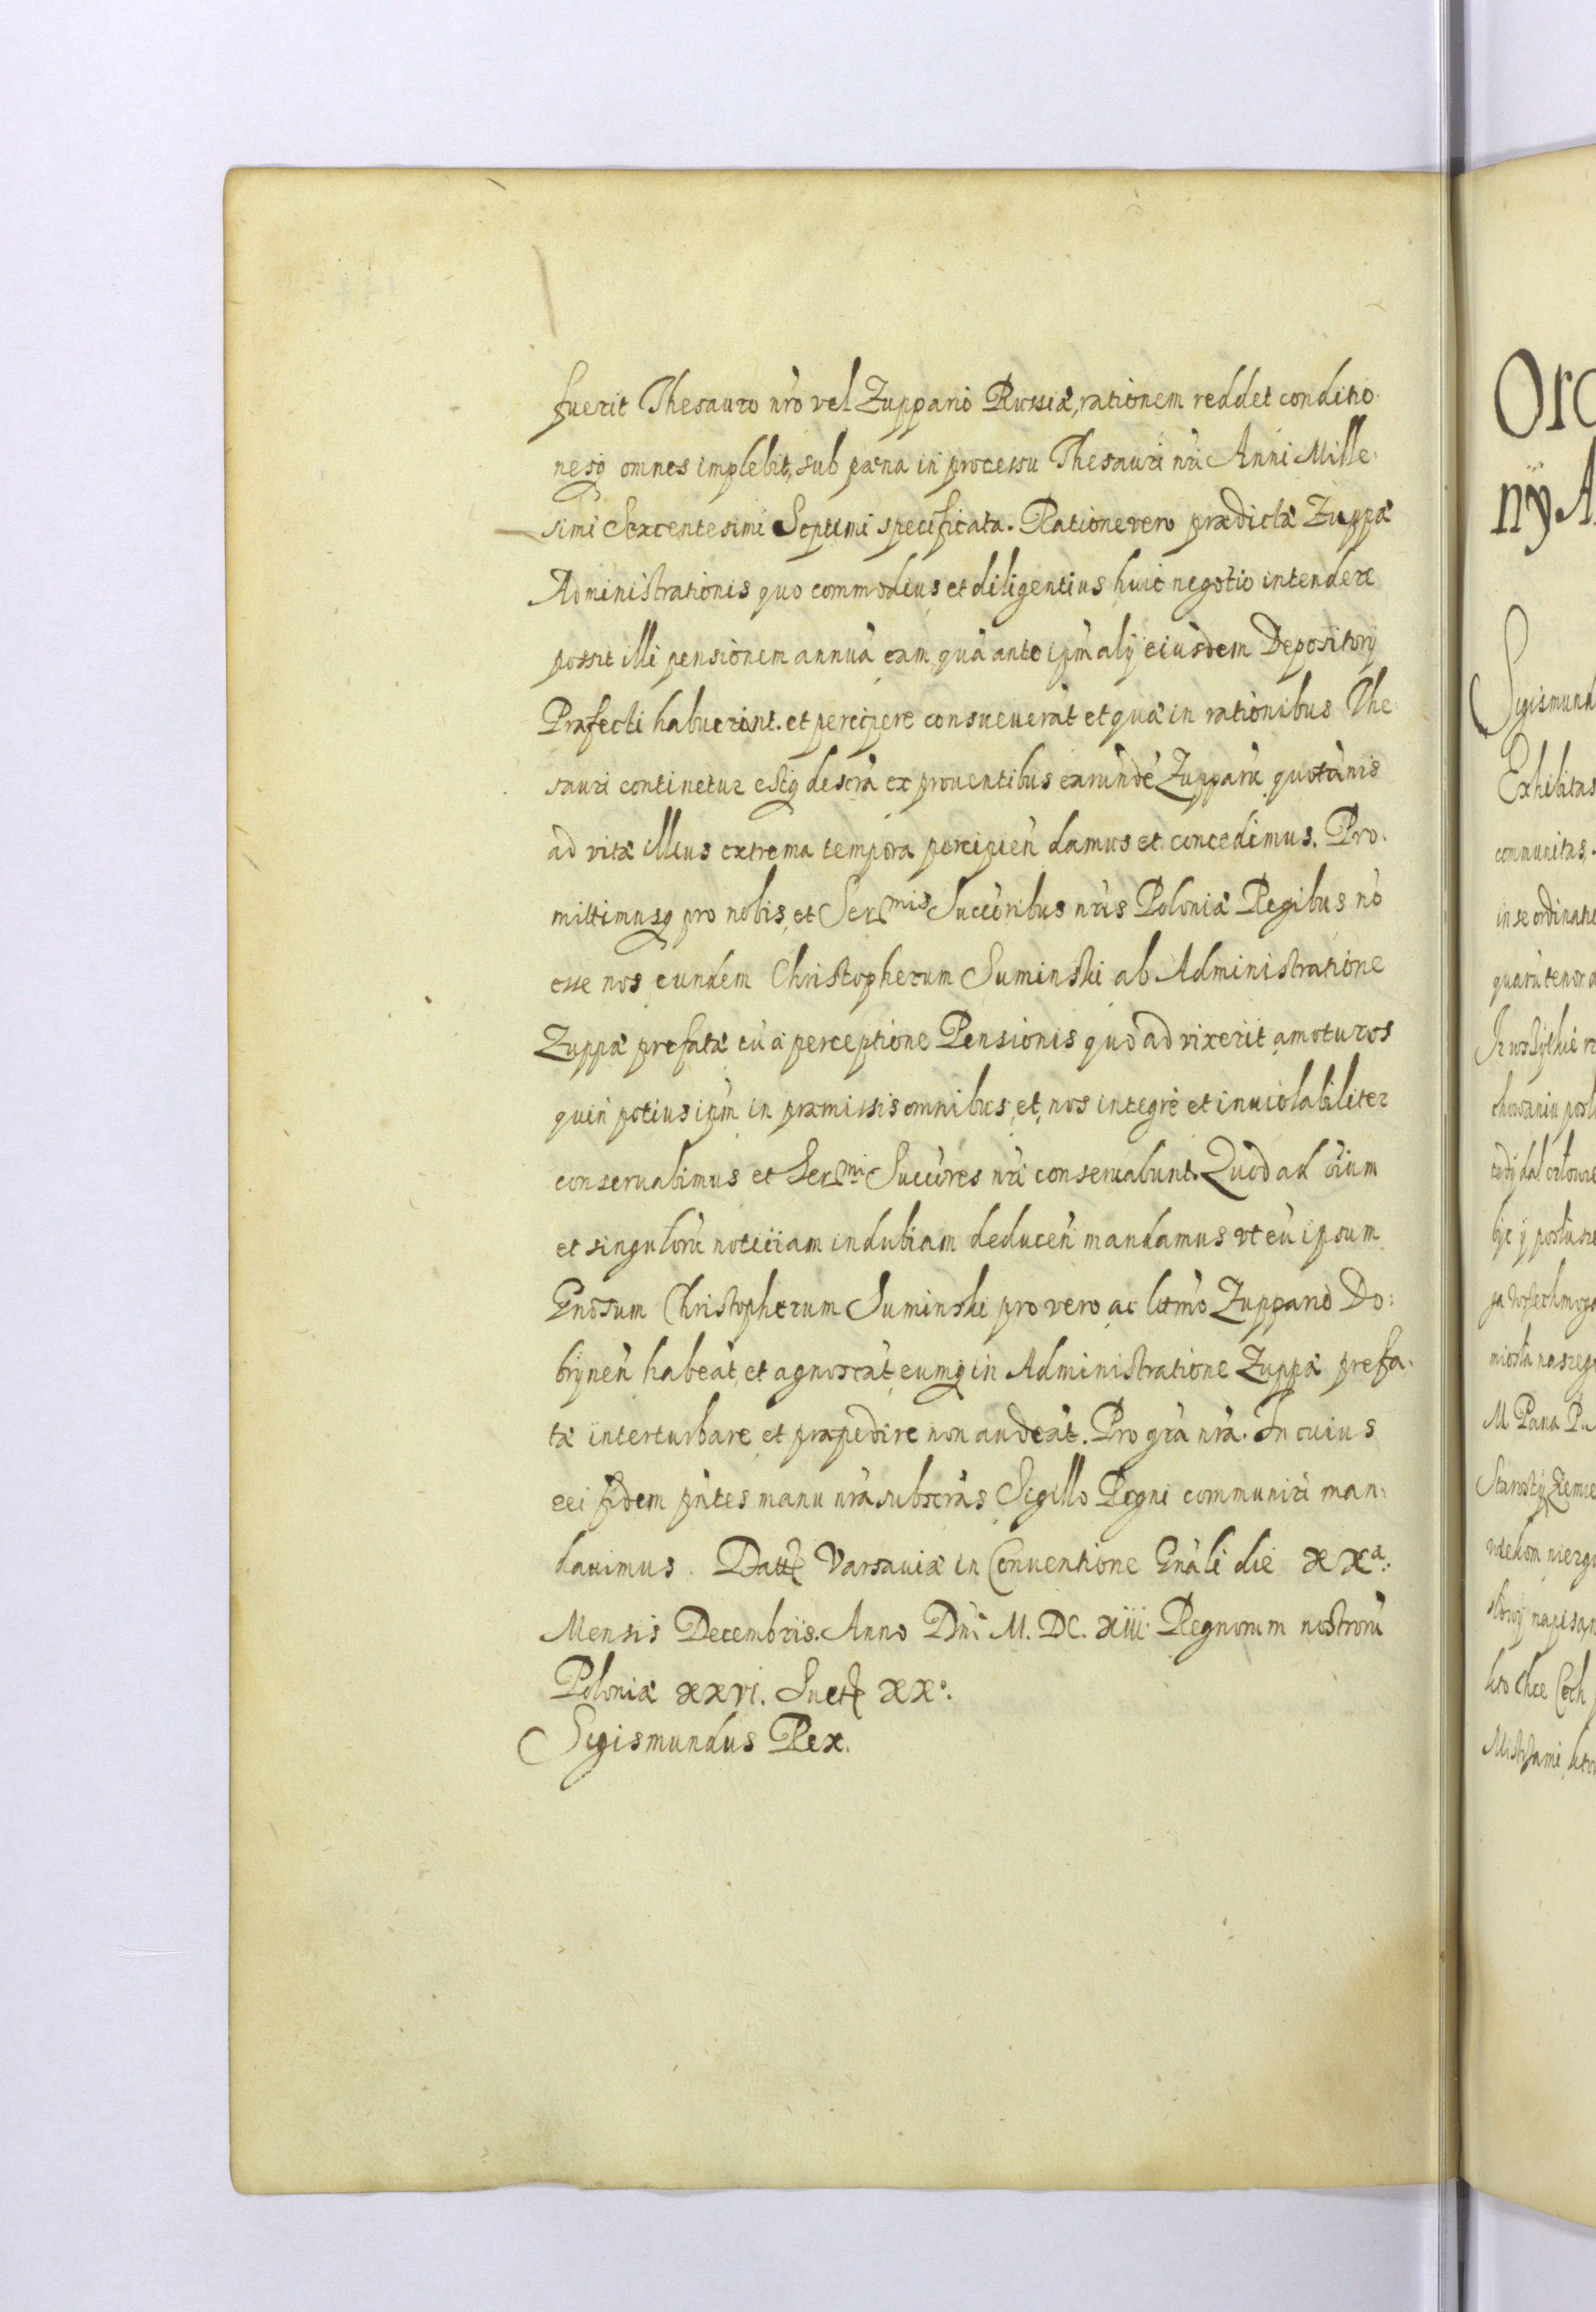 fuerit Thesauro nr̃o vel Zuppario Russiæ, rationem reddet conditio-
nesq; omnes implebit, sub pæna in processu Thesauri nr̃i Anni Mille-
simi Sexcentesimi Septimi specificata. Ratione vero prædictæ Zuppæ
Administrationis quo commodius et diligentius huic negotio intendere
possit illi pensionem annuã eam quã ante ip̃m alÿ eiusdem Depositorÿ
Præfecti habuerint. et percipere consueuerãt et quæ in rationibus The-
sauri continetur estq; descr̃a ex prouentibus earundẽ Zupparũ quotãnis
ad vitæ illius extrema tempora percipieñ damus et concedimus. Pro-
mittimusq; pro nobis, et Ser^mis Succ̃oribus nr̃is Poloniæ Regibus nõ
esse nos eundem Christopherum Suminski ab Administratione
Zuppæ prefatæ eũ a perceptione Pensionis quoad vixerit amoturos
quin potius ip̃m in præmissis omnibus, et nos integrè et inuiolabiliter
conseruabimus et Ser^mi Succ̃ores nr̃i conseruabunt. Quod ad õium
et singulorũ notitiam indubiam deduceñ mandamus vt eũ ipsum
Gñosum Christopherum Suminski pro vero ac lt̃mo Zuppario Do:
brÿneñ habeãt, et agnoscãt, eumq; in Administratione Zuppæ prefa-
tæ interturbare et præpedire non audeãt. Pro gr̃a nr̃a. In cuius
rei fidem pñtes manu nr̃a subscr̃as Sigillo Regni communiri man-
dauimus. Datt Varsauiæ in Conuentione Gñali die XX^a:
Mensis Decembris. Anno Dñi M. DC. XIII. Regnorum nostrorũ
Poloniæ XXVI. Suet XX°.
Sigismundus Rex.
Sigismund
Exhibitas
communitas,
in se ordinatio
quarũ tenor
Starostÿ Ziemie
M. Pana
kto chce Cech